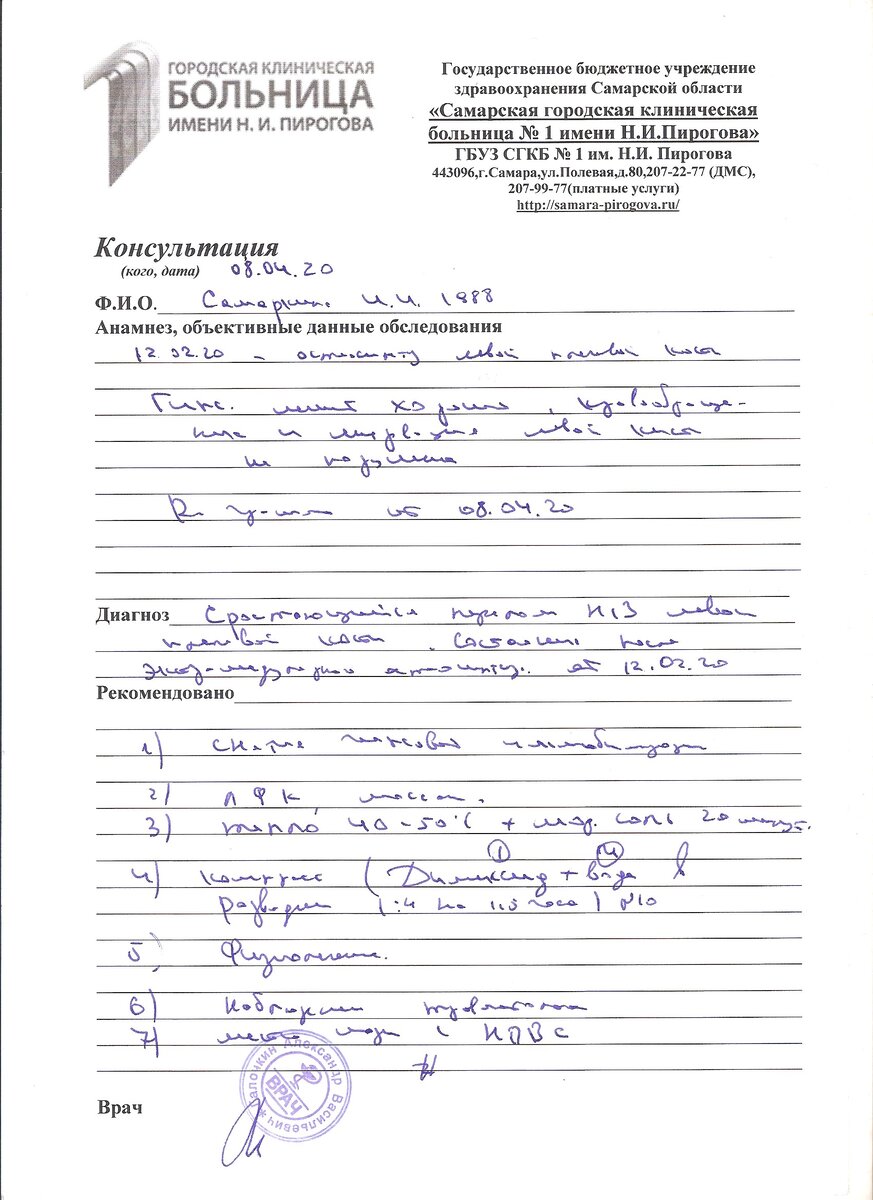 ГОРОДСКАЯ КЛИНИЧЕСКАЯ
БОЛЬНИЦА
ИМЕНИ Н. И. ПИРОГОВА
Государственное бюджетное учреждение
здравоохранения Самарской области
«Самарская городская клиническая
больница № 1 имени Н.И.Пирогова»
ГБУЗ СГКБ № 1 им. Н.И. Пирогова
443096,г.Самара,ул.Полевая,д.80,207-22-77 (ДМС),
207-99-77(платные услуги)
http://samara-pirogova.ru/
Консультация
(кого, дата) 08.04.20
Ф.И.О. И.И. 1988
Анамнез, объективные данные обследования
12.02.20 - левой плечевой кости
Гипс. лежит хорошо, кровообраще-
ние и иннервация левой кисти
не нарушены
от 08.04.20
Диагноз Срастающийся перелом Н/3 левой
плечевой кости. Состояние после
от 12.02.20
Рекомендовано
1) снятие гипсовой иммобилизации
2) ЛФК, массаж.
3) тепло 40-50°C + мор. соль 20 минут.
1 4
4) компресс (Димексид + вода в
разведении 1:4 на 1.5 часа) №10
5) Физиолечение.
6) Наблюдение травматолога
7) мази с НПВС
Александр Васильевич
ВРАЧ
Врач